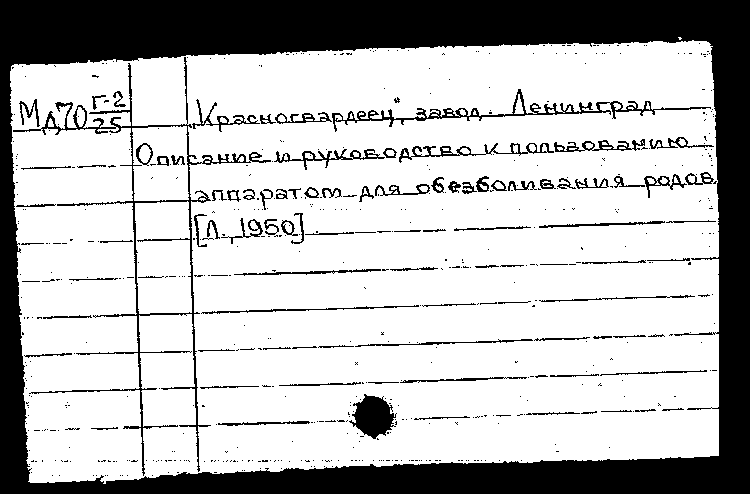 Мд70 Г-2/25
„Красногвардеец", завод. Ленинград
Описание и руководство к пользованию
аппаратом для обезболивания родов
[Л., 1950]